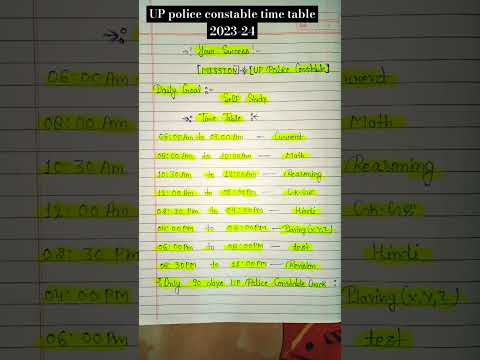 UP police constable time table
2023-24
Your Success
[MISSION] [UP Police Constable]
Daily Goal :-
Self Study
Time Table
06:00 Am to 07:00 Am — Current
08:00 Am to 10:00 Am — Math
10:30 Am to 12:00 Am — Reasoning
12:00 Am to — GK-GS
02:30 Pm to 04:00 Pm — Hindi
04:00 Pm to 06:00 Pm — (x,y,z)
06:00 Pm to 08:00 Pm — test
08:30 Pm to 11:00 Pm — Revision
Only 90 days UP Police Constable Crack
06:00 Am
08:00 Am
10:30 Am
12:00 Am
02:30 Pm
04:00 Pm
06:00 Pm
Current
Math
Reasoning
GK-GS
Hindi
(x,y,z)
test